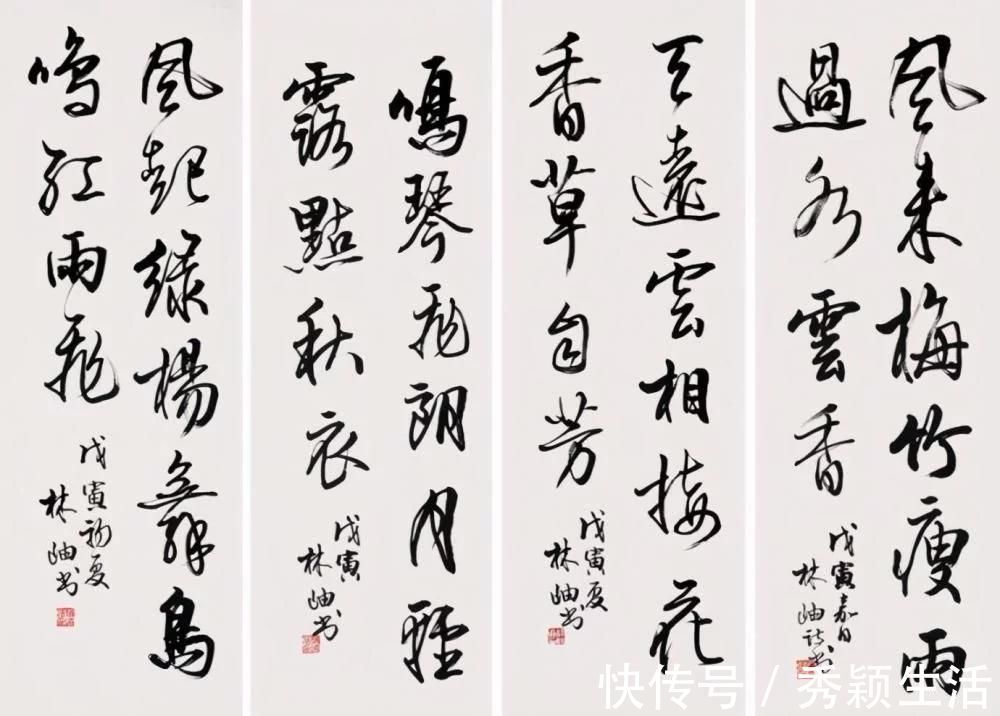 風来梅竹瘦雨
過水雲香
戊寅嘉日
林岫诗书
天遠雲相接花
香草自芳
戊寅夏
林岫书
鳴琴飛朗月輕
露點秋衣
戊寅
林岫书
風起綠楊舞鳥
鳴紅雨飛
戊寅初夏
林岫书
快传号 / 秀颖生活